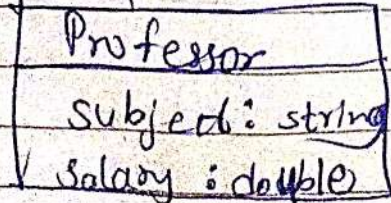 Professor
subject: string
salary: double